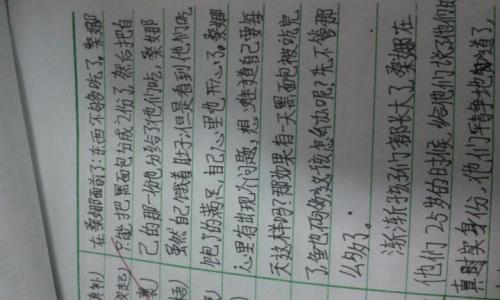 在桑娜面前了:东西不够吃了。桑娜
只能把黑面包分成2份了然后把自
己的那一份也分给了他们吃,桑娜
虽然自己饿着肚子,但是看到他们吃
饱了的满足,自己心里也开心了。桑娜
心里有出现个问题,想:难道自己要每
天这样吗?那如果有一天黑面包被吃完
了,鱼也不够该怎么办呢?先不管那
么多了。
渐渐孩子们都长大了,桑娜在
他们25岁的时候,给他们说了他们的
真实身份,他们平静地知道了,